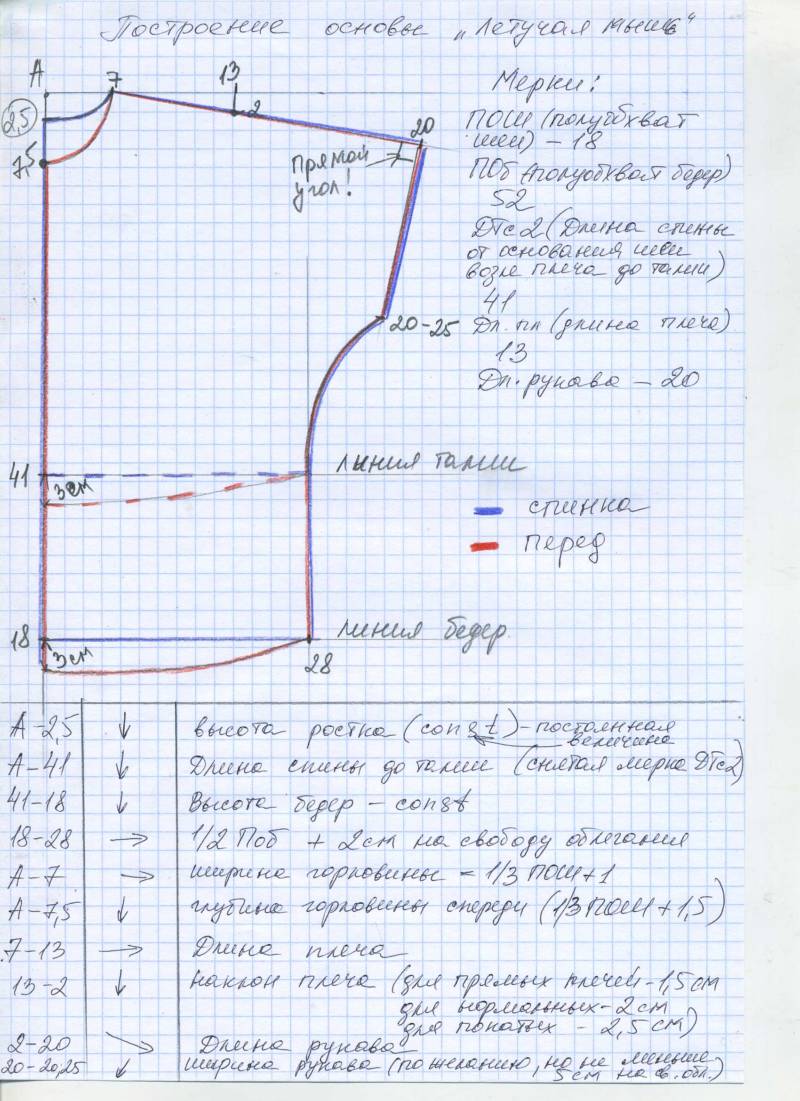 Построение основы „Летучая мышь"
А
7
13
2
20
2,5
7,5
прямой
угол!
Мерки:
ПОШ (полуобхват
шеи) – 18
ПОб (полуобхват бедер)
52
ДТс2 (Длина спины
от основания шеи
возле плеча до талии)
41
Дл. пл (длина плеча)
13
Дл. рукава – 20
20-25
41
3см
линия талии
спинка
перед
18
3см
28
линия бедер.
А-2,5 ↓ высота ростка (const) - постоянная
величина
А-41 ↓ Длина спины до талии (снятая мерка ДТс2)
41-18 ↓ Высота бедер – const
18-28 → 1/2 Поб + 2см на свободу облегания
А-7 → ширина горловины = 1/3 ПОШ+1
А-7,5 ↓ глубина горловины спереди (1/3 ПОШ + 1,5)
7-13 → Длина плеча
13-2 ↓ наклон плеча (для прямых плечей - 1,5 см
для нормальных - 2 см
для покатых - 2,5 см)
2-20 ↘ Длина рукава
20-20,25 ↓ ширина рукава (по желанию, но не меньше
5см на св. обл.)